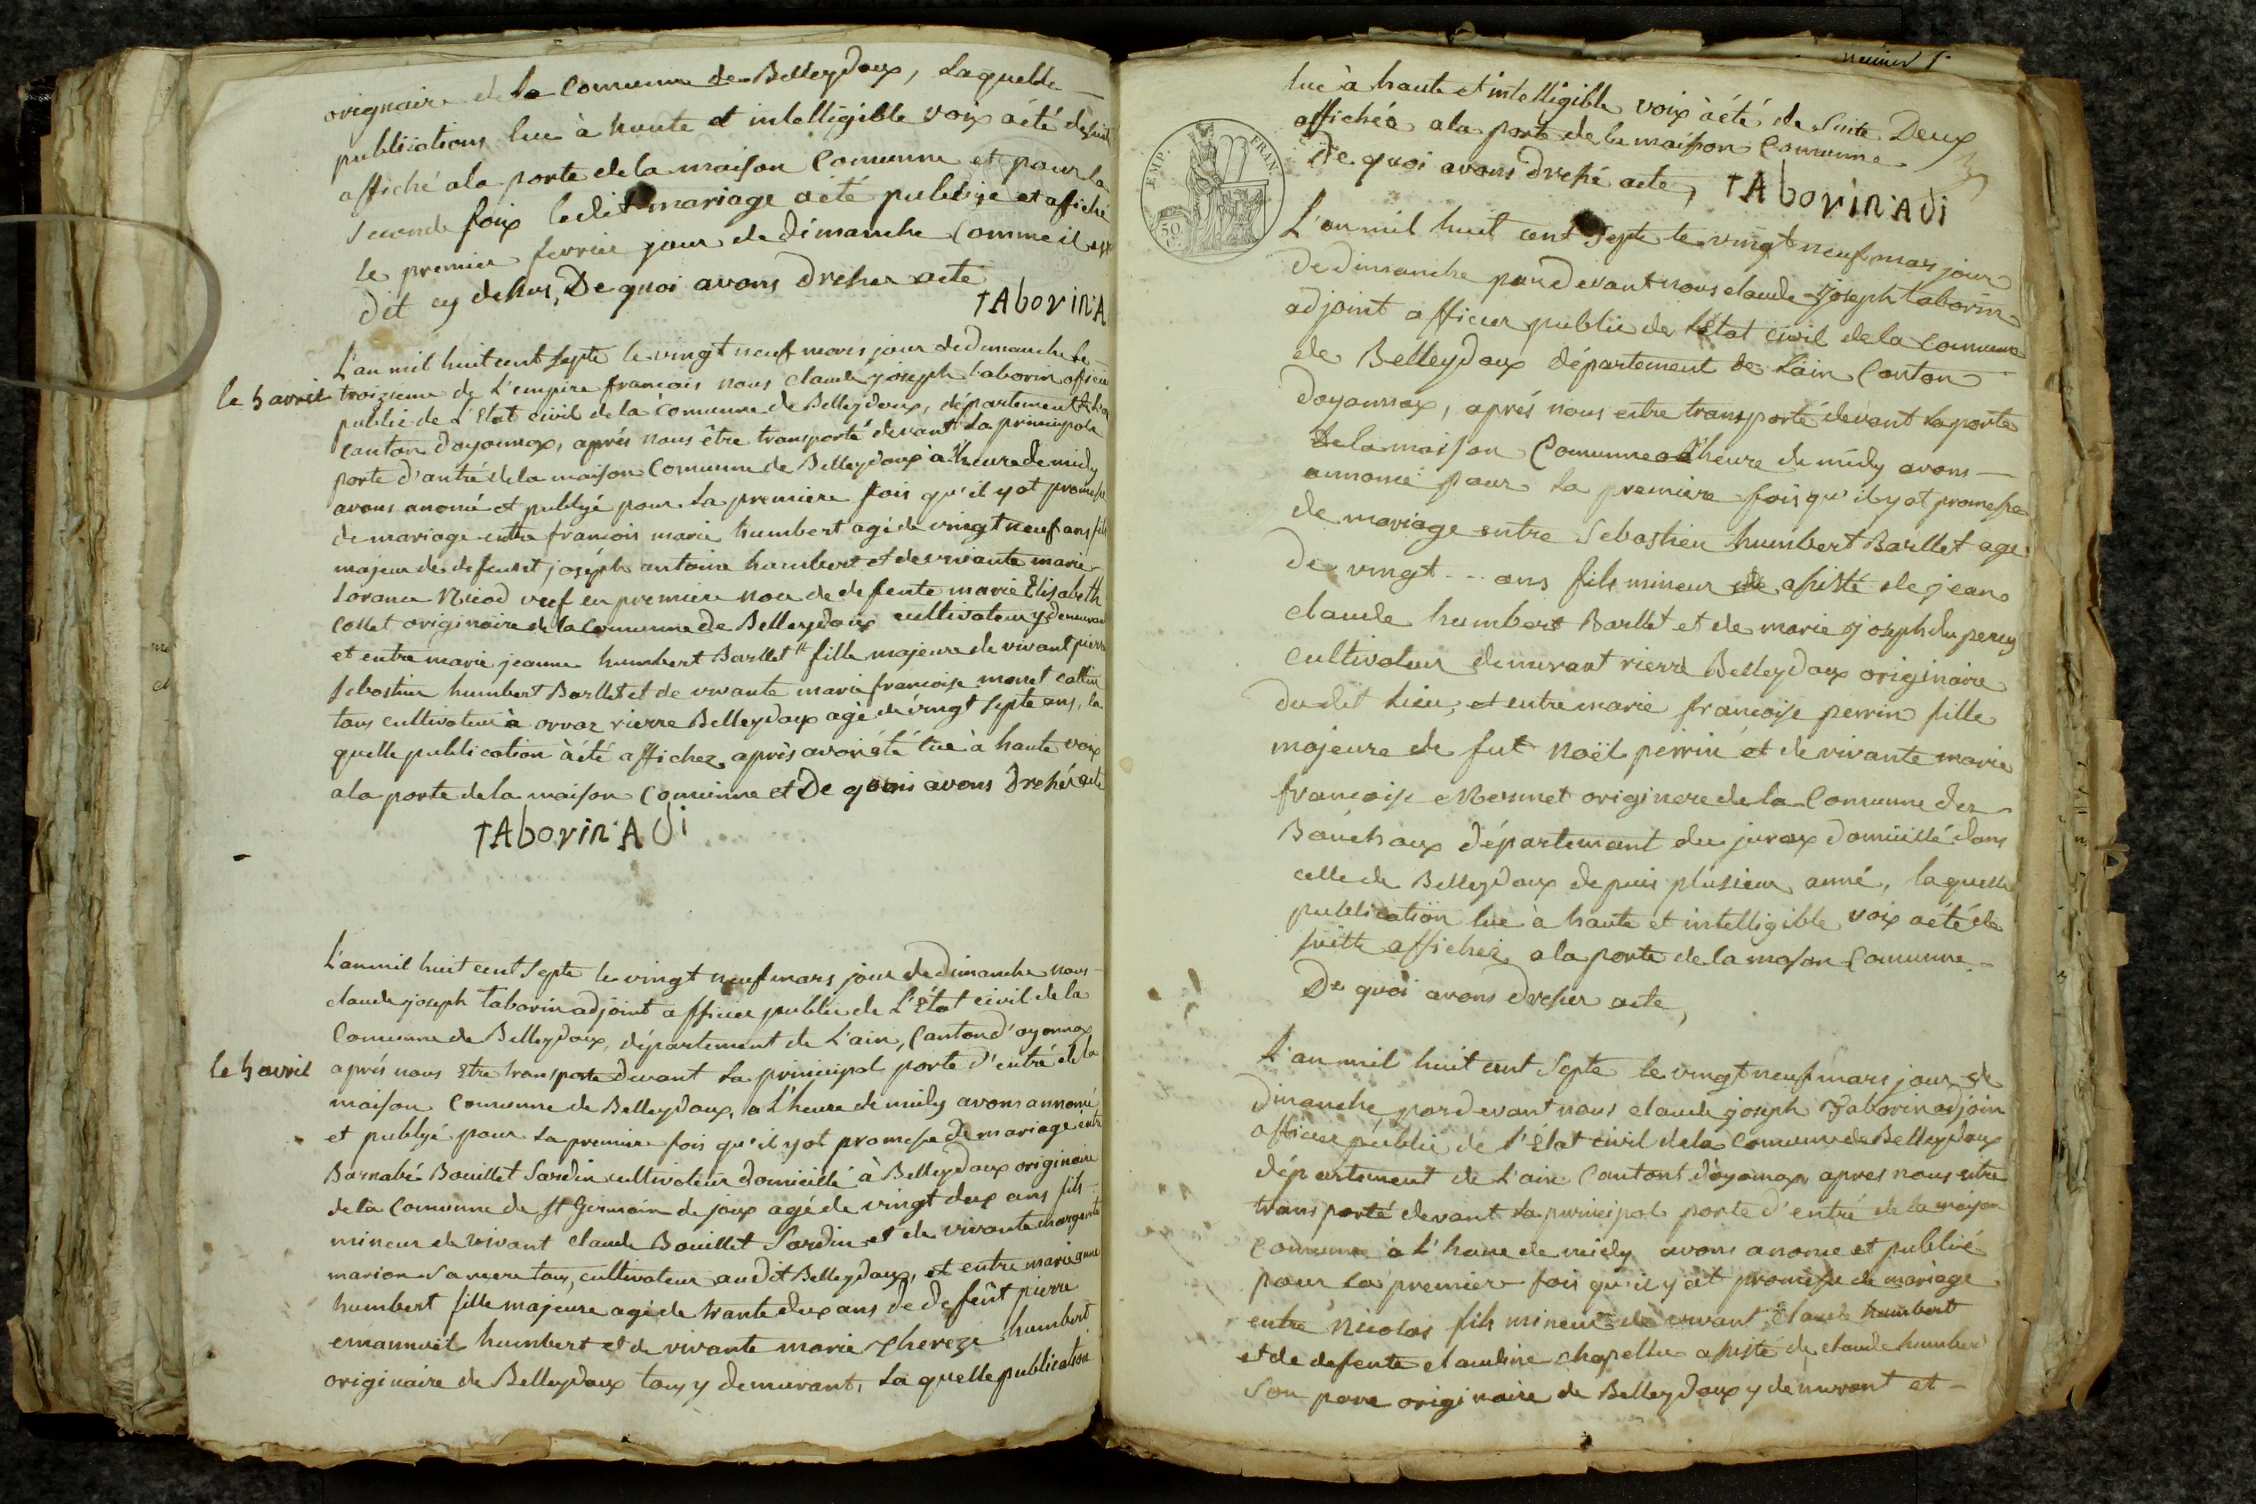 orignaire de la Comunne de Belleydoux, laquelle
publications lue à haute et intelligible voix a été de suit
affiché a la porte de la maison Comunne et pour la
seconde foix ledit mariage a été publiée et affiché
le premier fevrier jour de dimanche comme il est
dit cy dessus, De quoi avons dresser acte
TAborin A
L'an mil huit cent septe le vingt neuf mars jour de dimanche le
le 5 avril
troizieme de L'empire francois nous claude joseph taborin oficier
public de L'Etat civil de la comunne de Belleydoux, département de L'ain
canton doyonnax, aprés nous être transporté devant la principale
porte d'antré de la maison Comunne de Belleydoux à l'heure de midy
avons anoncé et publyé pour la premiere fois qu'il y ot promesse
de mariage entre francois marie humbert agé de vingt neuf ans fils
majeur de defeunt joséph antoine humbert et de vivante marie
Lorance Nicod veuf en premiere noce de defente marie Elisabeth
collet originaire de la Comunne De Belleydoux cultivateur y demurant
et entre marie jeanne humbert Barllet fille majeure de vivant pierre
sebastien humbert Barllet et de vivante marie francoise monet cattin
tous cultivateur à orvaz rierre Belleydoux agé de vingt septe ans, la
quelle publication à été affichez après avoir été lue à haute voix
a la porte de la maison comunne et De quoi avons dressé acte
TAborin A di
L'an mil huit cent septe le vingt neuf mars jour de dimanche nous
claude joseph taborin adjoint afficier public de L'Etat civil de la
Comunne de Belleydoux, département de L'ain, Canton d'oyonnax
le 5 avril
aprés nous Etre transporte devant la principal porte d'entré de la
maison Comunne de Belleydoux, a L'heure de midy avons annoncé
et publyé pour la premiere fois qu'il y ot promesse de mariage entre
Barnabé Bouillet Sardin cultivateur domicillé à Belleydoux originaire
de la Comunne de St Germain de joux agé de vingt deux ans fils
mineur de vivant claude Bouillet Sardin et de vivante marguerite
marion sa mere tous cultivateur au dit Belleydoux, et entre marie anne
humbert fille majeure agé de trante deux ans de defeunt pierre
emannuel humbert et de vivante marie thereze humbert
originaire de Belleydoux tous y demurant, la quelle publication
lue à haute et intelligible voix à été de suite Deux
affichée a la porte de la maison Comunne
De quoi avons dressé acte, TAborin A di
EMP. FRAN.
50 C.
L'an mil huit cent septe le vingt neuf mars jour
de dimanche par devant nous claude joseph taborin
adjoint afficier public de L'Etat civil de la Comunne
de Belleydoux département de L'ain Canton
doyonnax, aprés nous être transporté devant la porte
de la maison Comunne a l'heure de midy avons
annoncé pour la premiere fois qu'il y ot promesse
de mariage entre Sebastien humbert Barllet age
de vingt .. ans fils mineur assisté de jean
claude humbert Barllet et de marie joseph du percy
cultivateur demurant rierre Belleydoux originaire
du dit lieu, et entre marie francoise perrin fille
majeure de fut Noël perrin et de vivante marie
francoise Mermet originere de la Comunne des
Bouchoux département du jurax domicillé dans
celle de Belleydoux depuis plusieur anné, la quelle
publication lue à haute et intelligible voix a été de
suitte affichez a la porte de la mason Comunne
De quoi avons dresser acte,
L'an mil huit cent septe le vingt neuf mars jour de
dimanche par devant nous claude joseph Taborin adjoin
afficier public de L'Etat civil de la Comunne de Belleydoux
département de L'ain Cantont d'oyonnax apres nous entre
transporté devant la principal porte d'entré de la maison
Comunne à L'heure de midy avons anonce et publié
pour la premier fois qu'il y ot promesse de mariage
entre Nicolas fils mineur de vivant Claude humbert
et de defente claudine chapellu assisté de claude humbert
son pere originaire de Belleydoux y demurant et